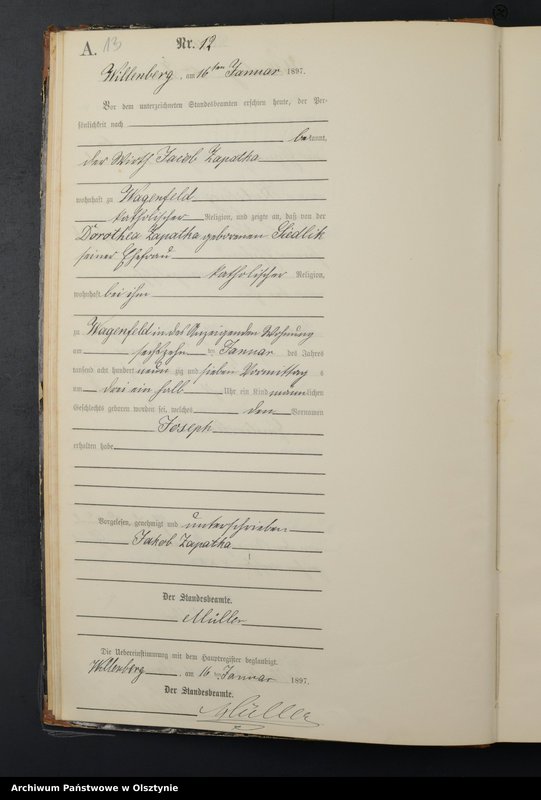 A. 13 Nr. 12
Willenberg, am 16ten Januar 1897.
Vor dem unterzeichneten Standesbeamten erschien heute, der Per-
sönlichkeit nach
bekannt,
der Wirth Jacob Zapatka
wohnhaft zu Wagenfeld
katholischer Religion, und zeigte an, daß von der
Dorothea Zapatka geborenen Siedlik
seiner Ehefrau
katholischer Religion,
wohnhaft bei ihm
zu Wagenfeld in des Anzeigenden Wohnung
am sechszehn ten Januar des Jahres
tausend acht hundert neunzig und sieben Vormittags
um drei ein halb Uhr ein Kind männlichen
Geschlechts geboren worden sei, welches den Vornamen
Joseph
erhalten habe
Vorgelesen, genehmigt und unterschrieben
Jakob Zapatka
Der Standesbeamte.
Müller
Die Uebereinstimmung mit dem Hauptregister beglaubigt.
Willenberg, am 16ten Januar 1897.
Der Standesbeamte.
Müller
Archiwum Państwowe w Olsztynie